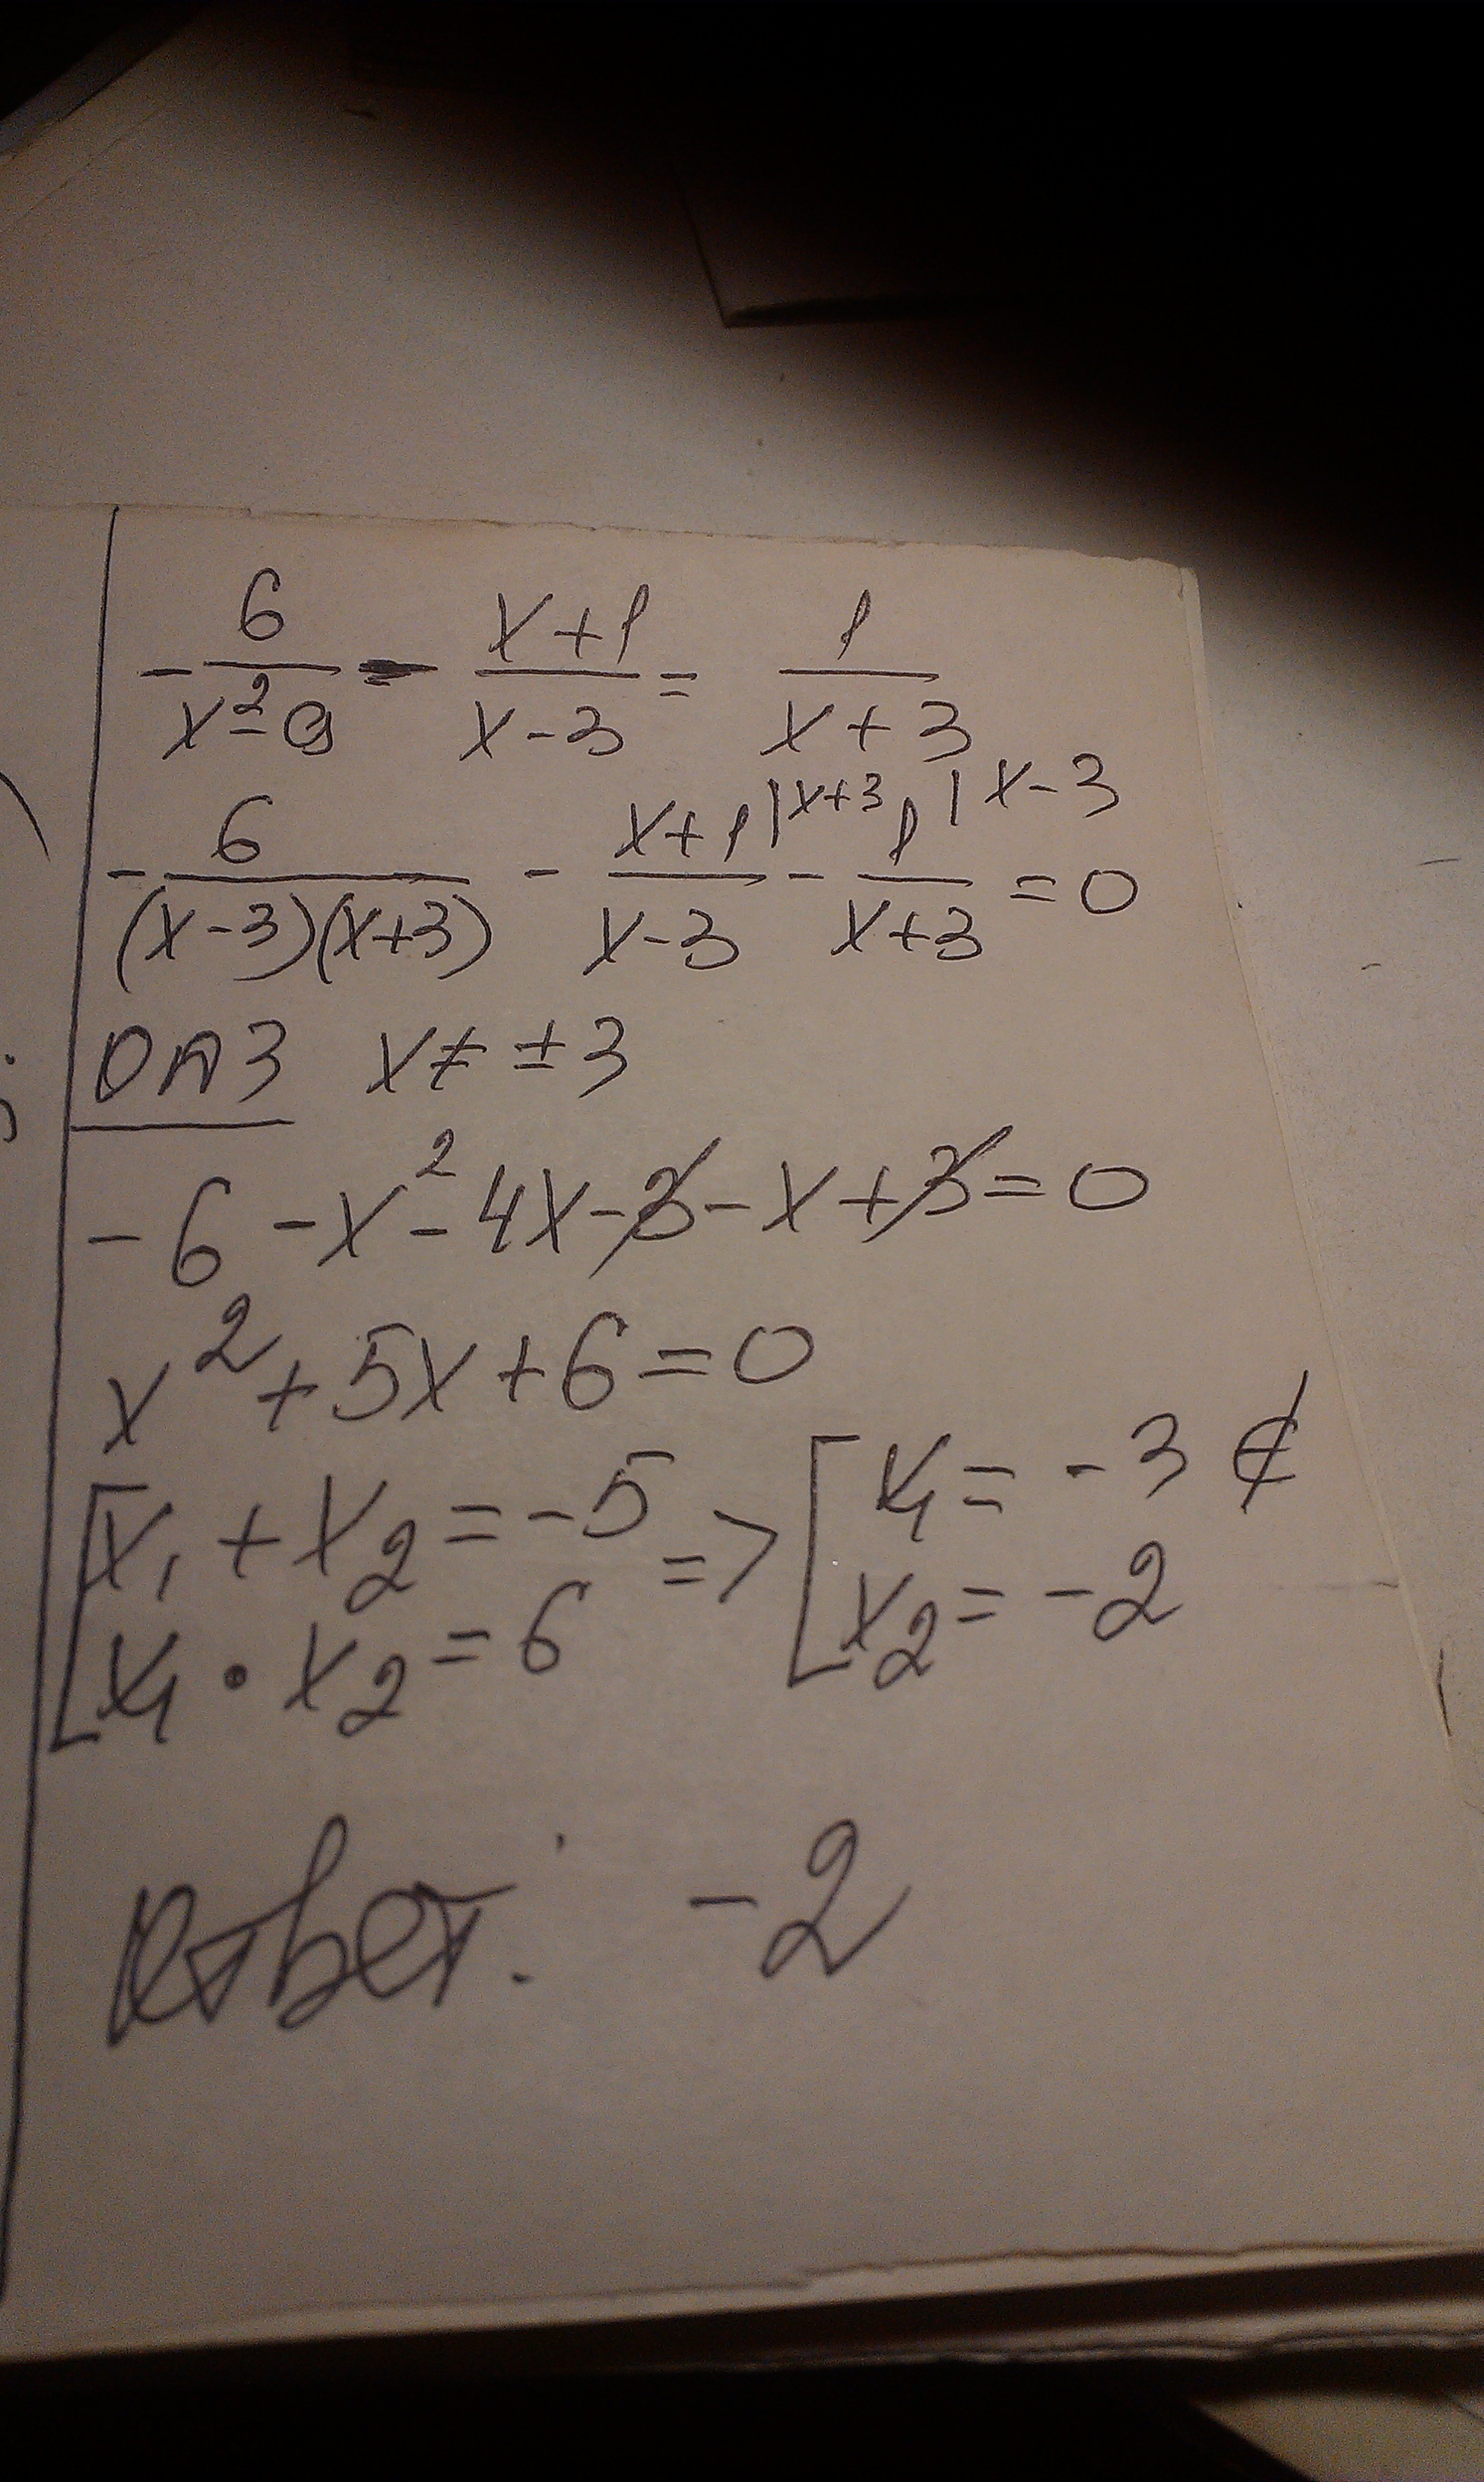 -6/(x²-9) - (x+1)/(x-3) = 1/(x+3)
-6/((x-3)(x+3)) - (x+1)/(x-3) |x+3 - 1/(x+3) |x-3 = 0
ОДЗ x ≠ ±3
-6 - x² - 4x - 3 - x + 3 = 0
x² + 5x + 6 = 0
[x₁ + x₂ = -5 => [x₁ = -3 ∉
[x₁ · x₂ = 6 [x₂ = -2
Ответ: -2